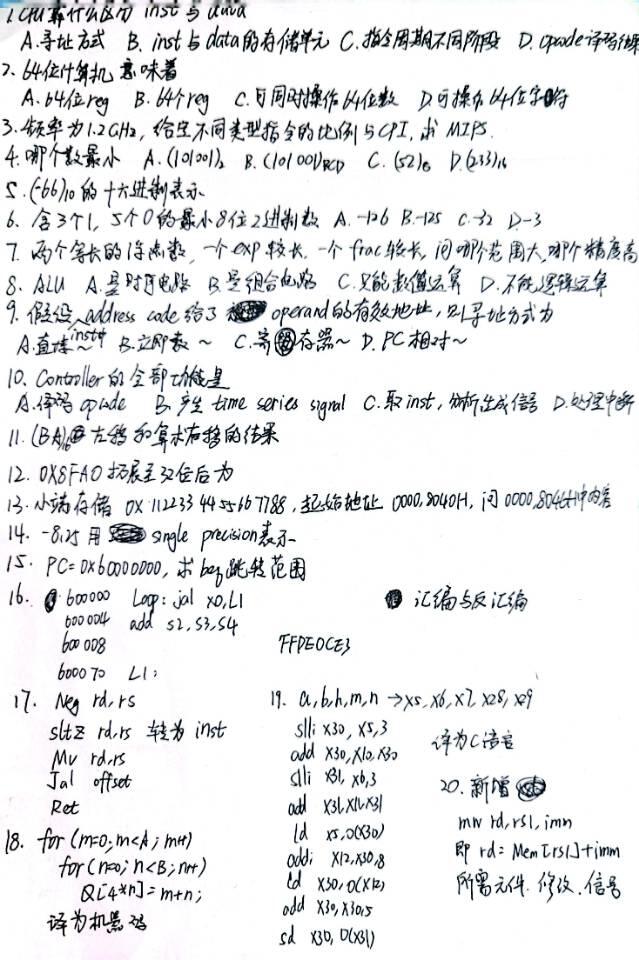 1. CPU靠什么区分 inst 与 data
A.寻址方式 B. inst与data的存储单元 C.指令周期不同阶段 D. opcode译码结果
2. 64位计算机意味着
A. 64位reg B. 64个reg C.可同时操作64位数 D.可操作64位字符
3. 频率为1.2GHz, 给定不同类型指令的比例与CPI, 求 MIPS.
4. 哪个数最小 A. (101001)₂ B. (101001)BCD C. (52)₈ D. (233)₁₆
5. (-66)₁₀ 的十六进制表示
6. 含3个1, 5个0的最小8位2进制数 A. -126 B. -125 C. -32 D. -3
7. 两个等长的浮点数, 一个exp较长, 一个frac较长, 问哪个范围大, 哪个精度高
8. ALU A.是时序电路 B.是组合电路 C.只能数值运算 D.不能逻辑运算
9. 假设 inst中 address code给了 operand的有效地址, 则寻址方式为
A.直接~ B.立即数~ C.寄存器~ D. PC相对~
10. Controller的全部功能是
A.译码opcode B.产生 time series signal C.取inst, 分析生成信号 D.处理中断
11. (BA)₁₆左移和算术右移的结果
12. 0X8FA0扩展至32位后为
13. 小端存储 0X 11 22 33 44 55 66 77 88, 起始地址 0000,8040H, 问0000,8046H中内容
14. -8.25 用 single precision表示
15. PC=0X60000000, 求beq跳转范围
16. 600000 Loop: jal x0, L1 汇编与反汇编
600004 add s2, s3, s4
600008 FFDE0CE3
600070 L1:
17. Neg rd, rs
sltz rd, rs 转为 inst
Mv rd, rs
Jal offset
Ret
18. for (m=0; m<A; m++)
for (n=0; n<B; n++)
Q[4*n] = m+n;
译为机器码
19. a, b, h, m, n → x5, x6, x7, x28, x29
slli x30, x5, 3 译为C语言
add x30, x10, x30
slli x31, x6, 3
add x31, x11, x31
ld x5, 0(x30)
addi x12, x30, 8
ld x30, 0(x12)
add x30, x30, x5
sd x30, 0(x31)
20. 新增
mw rd, rs1, imm
即 rd = Mem[rs1] + imm
所需元件. 修改. 信号